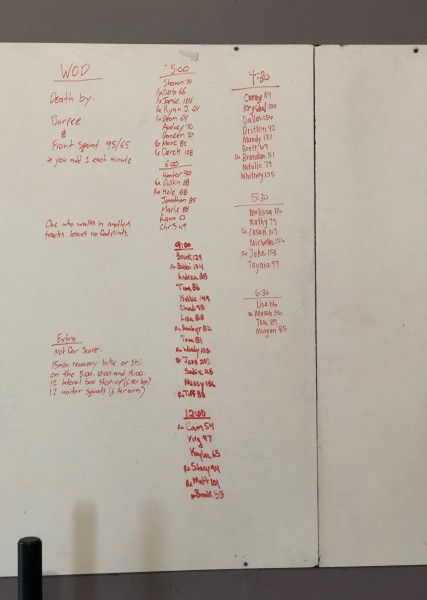 WOD
Death by:
Burpee
&
Front Squat 95/65
* you add 1 each minute
One who walks in another
tracks leaves no footprints.
Extra
Not For Score:
15min recovery bike or ski.
on the 5:00, 10:00 and 15:00:
12 lateral box step-up (6 Per leg)
12 waiter squats (6 Per arm)
5:00
Shawn 70
Rx Bob 66
Rx Jamie 104
Rx Ryan J. 64
Rx Dean 64
Audrey 70
Rx Marc 82
Rx Derek 128
6:00
Hunter 90
Rx Dustin 68
Rx Kole 88
Jonathan 85
Marie 88
63
Chris 49
9:00
Brook 129
Rx 104
Andrea 88
Tina 86
Kellie 149
Chad 98
Lisa 88
Rx 82
Tom 81
Rx Wendy 103
Rx Jess 203
Sadie 25
Missy 136
Rx Tiff 88
12:00
Rx Cam 54
97
Kaylee 65
Rx 94
Rx Matt 104
Rx Brook 53
4:30
Corey 84
Krystal 100
Dallas 154
Britten 92
Mandy 131
Brett 69
Rx Brandon 51
Natalie 79
Whitney 135
5:30
Melissa 116
Kathy 79
Rx 107
Michelle 136
Rx Jake 158
Taynia 77
6:30
Lisa 66
Rx Mason 96
Toni 89
Morgan 85